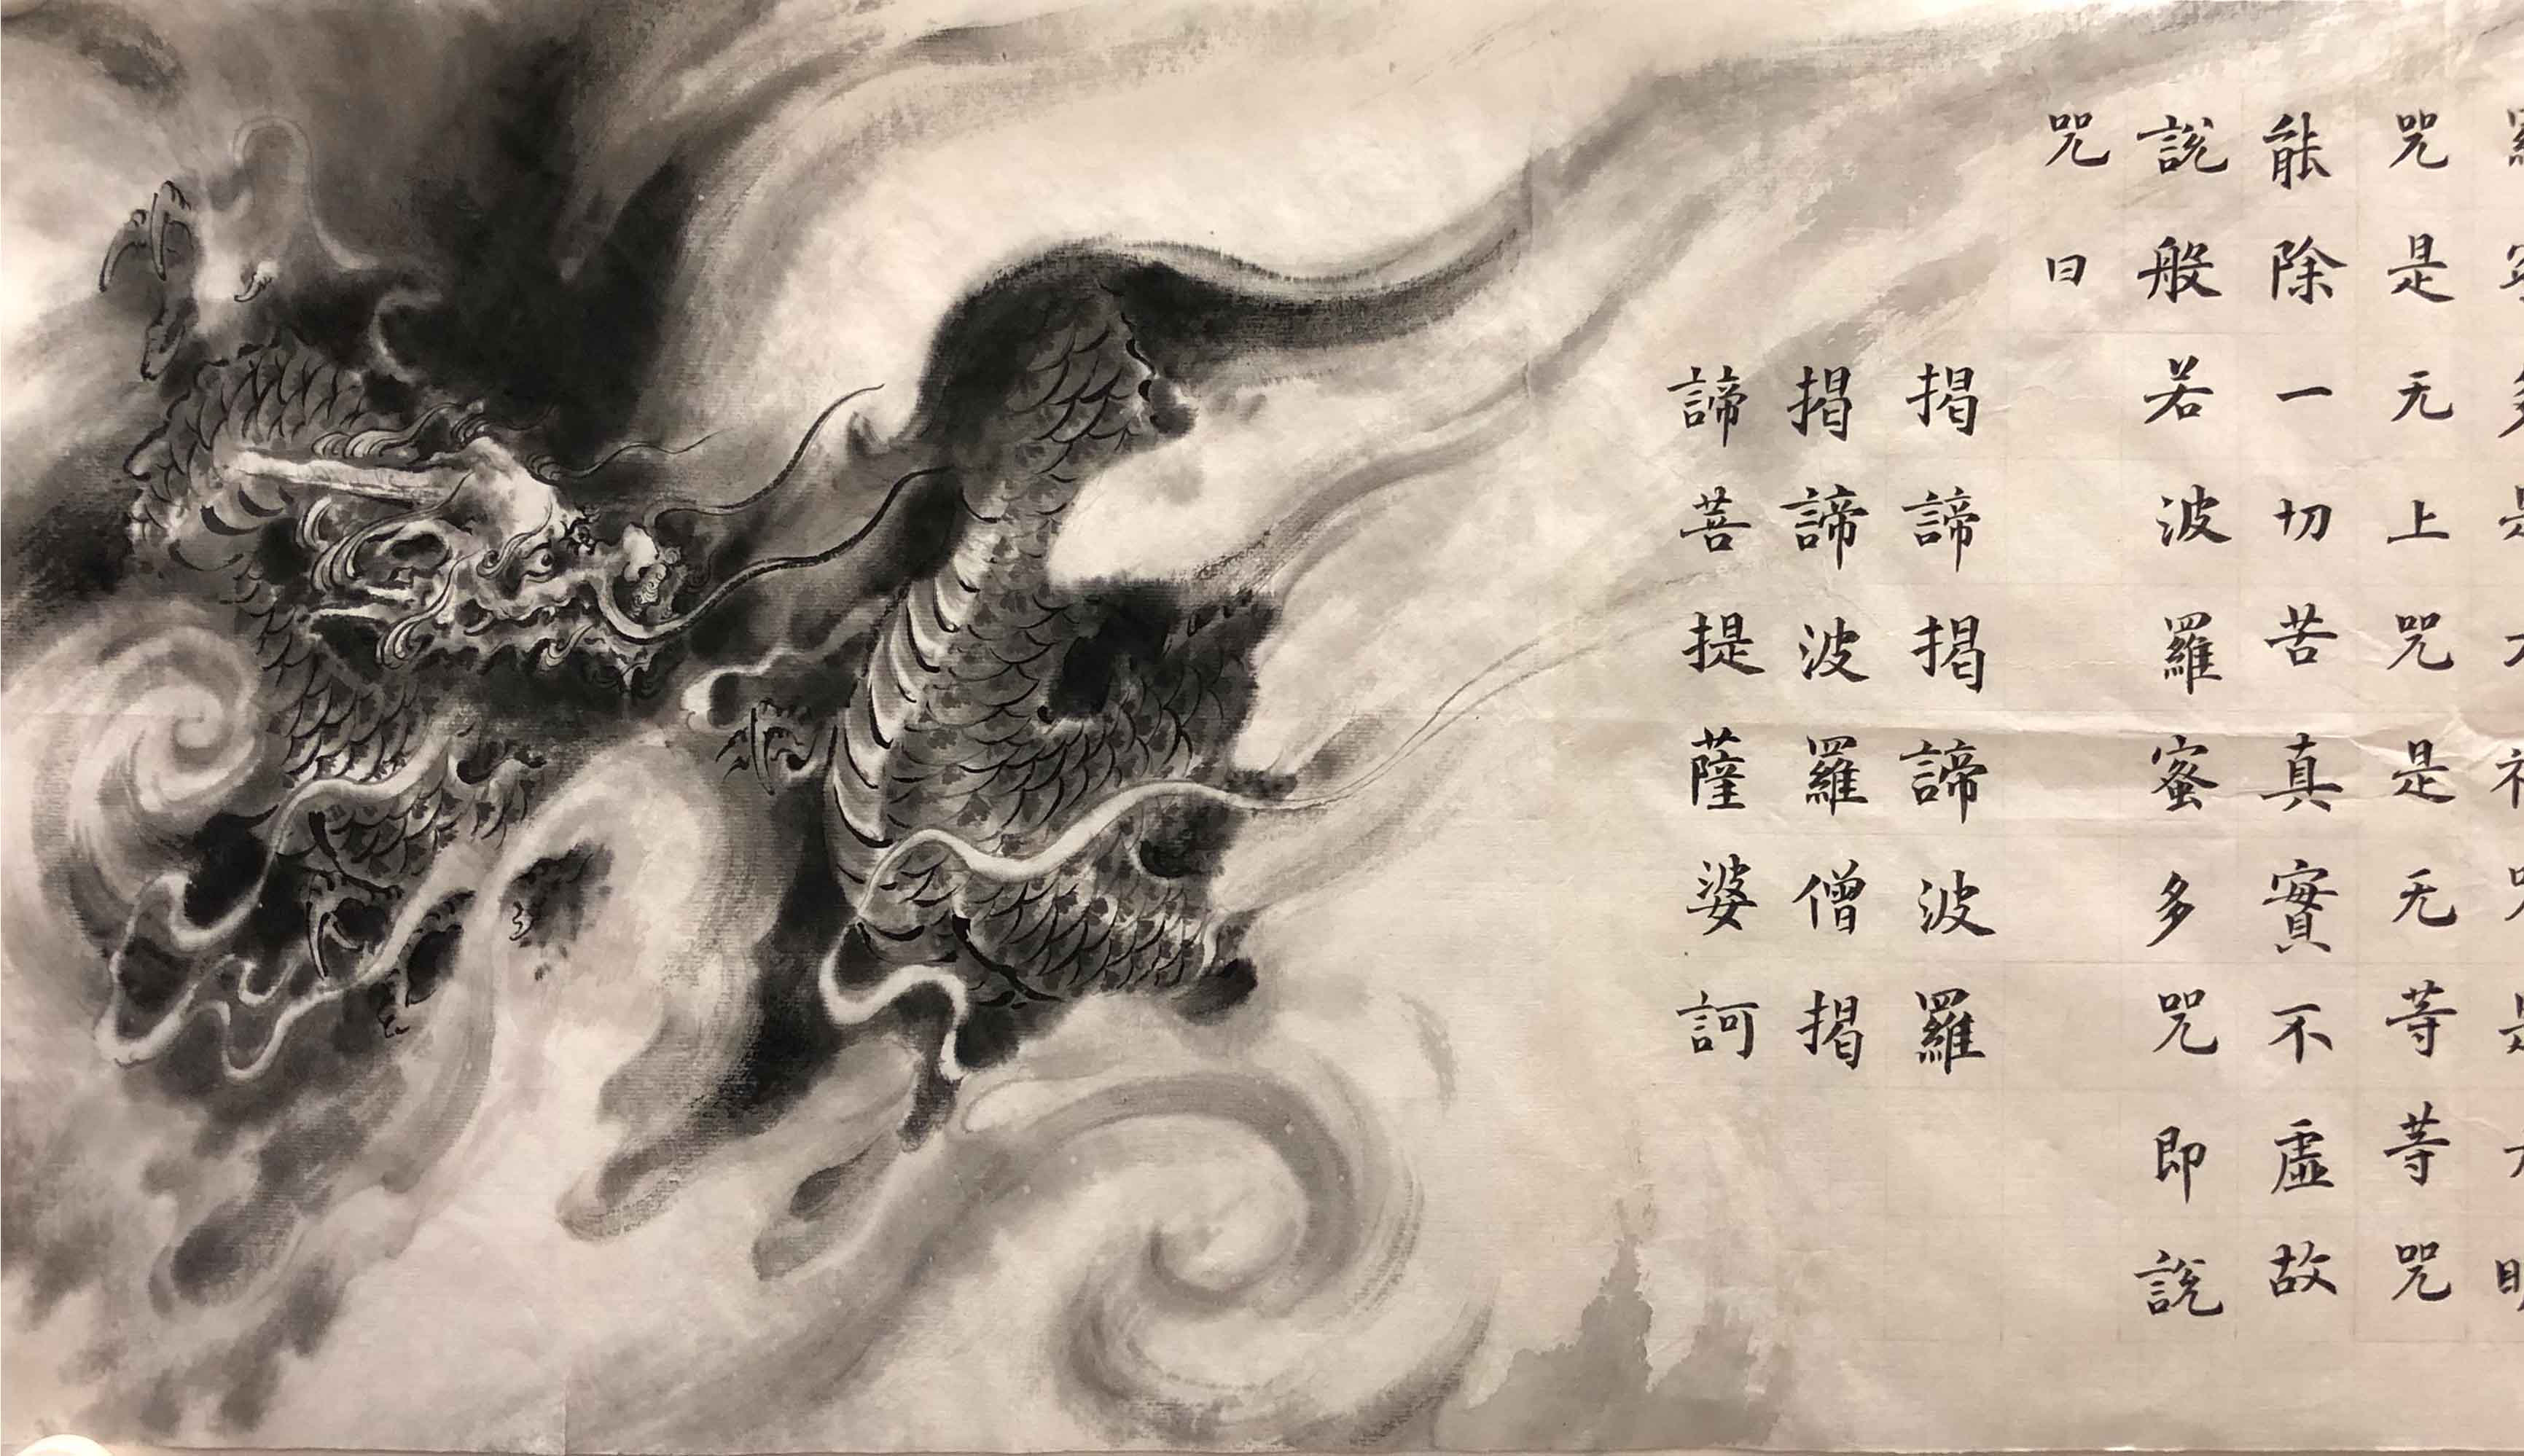 咒是无上咒是无等等咒
能除一切苦真實不虛故
說般若波羅蜜多咒即說
咒曰
揭諦揭諦波羅
揭諦波羅僧揭
諦菩提薩婆訶